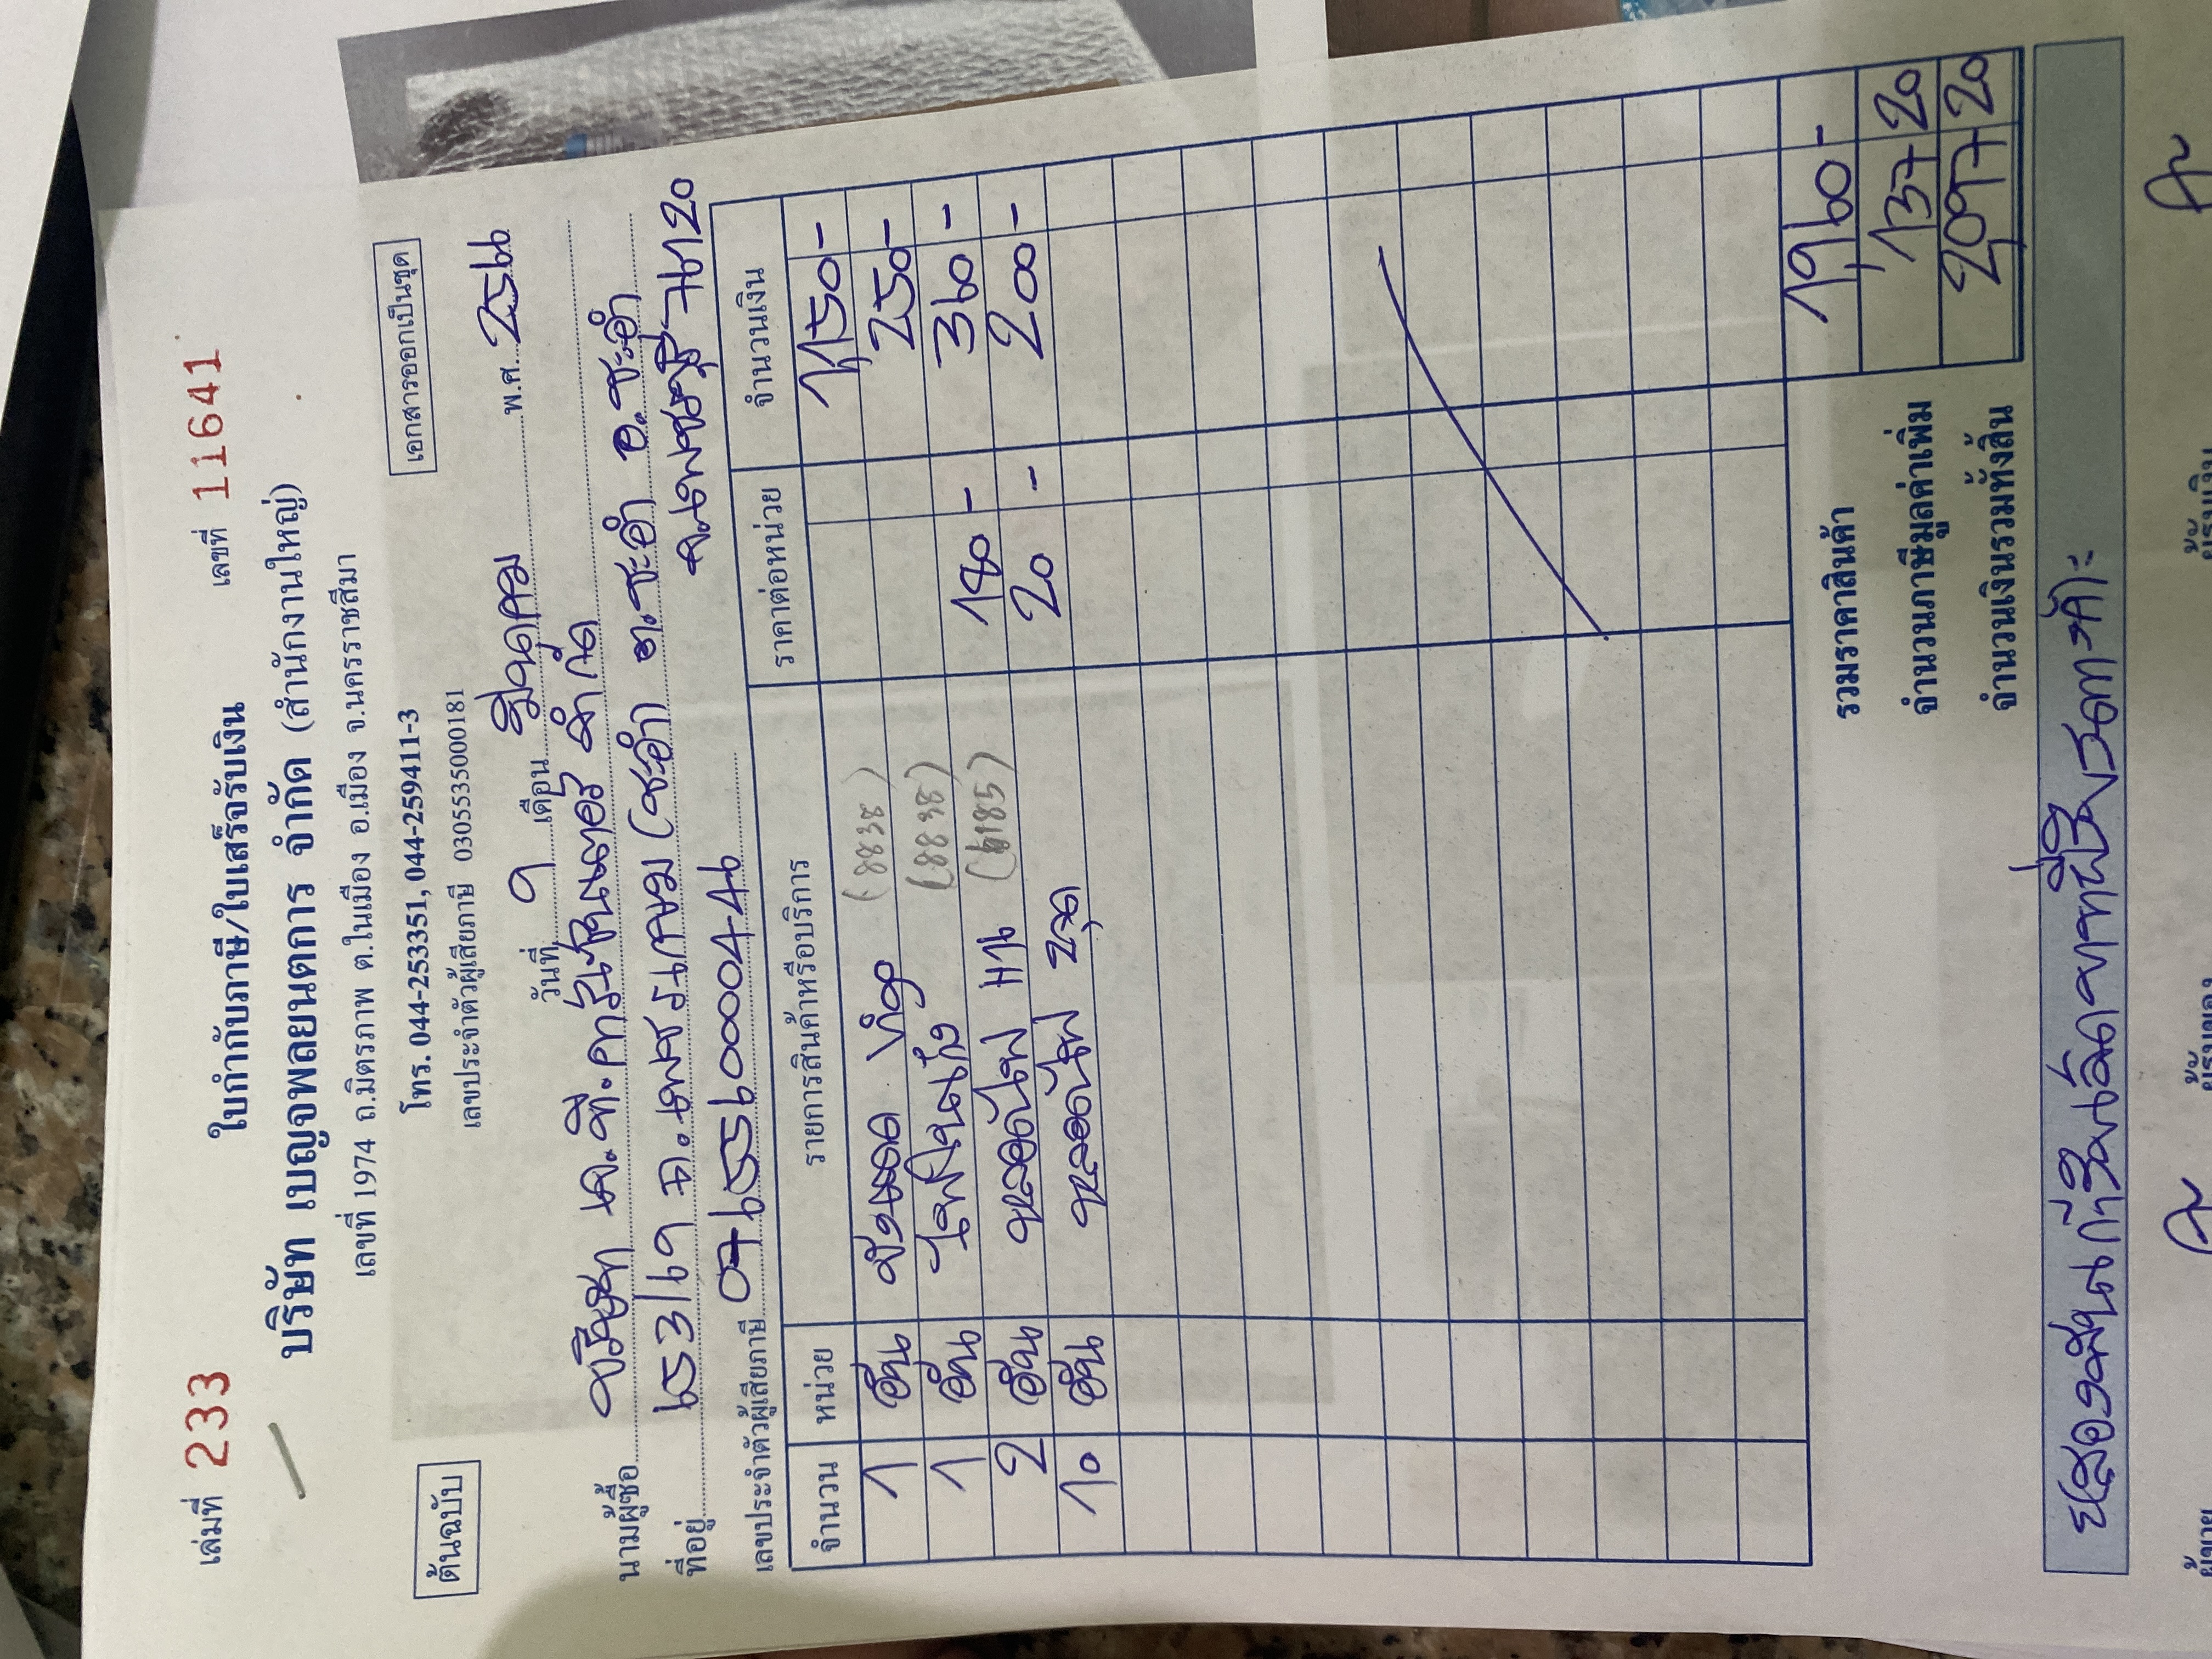 เล่มที่ 233 ใบกำกับภาษี/ใบเสร็จรับเงิน เลขที่ 11641
บริษัท เบญจพลยนตการ จำกัด (สำนักงานใหญ่)
เลขที่ 1974 ถ.มิตรภาพ ต.ในเมือง อ.เมือง จ.นครราชสีมา
ต้นฉบับ โทร. 044-253351, 044-259411-3 เอกสารออกเป็นชุด
เลขประจำตัวผู้เสียภาษี 0305535000181
วันที่ 9 เดือน มีนาคม พ.ศ. 2566
นามผู้ซื้อ บริษัท เค.ที. จำกัด
ที่อยู่ 653/69 ถ.เพชรเกษม (ชะอำ) ต.ชะอำ อ.ชะอำ
จ.เพชรบุรี 76120
เลขประจำตัวผู้เสียภาษี 0765560000446
จำนวน หน่วย รายการสินค้าหรือบริการ ราคาต่อหน่วย จำนวนเงิน
1 อัน Vigo (8838) 1,150-
1 อัน (8838) 250-
2 อัน หลอดไฟ H4 180- 360-
10 อัน หลอดไฟ 20- 200-
รวมราคาสินค้า 1,960-
จำนวนภาษีมูลค่าเพิ่ม 137 20
จำนวนเงินรวมทั้งสิ้น 2,097 20
สองพันเก้าสิบเจ็ดบาทยี่สิบสตางค์
ผู้ขาย ผู้รับของ ผู้รับเงิน